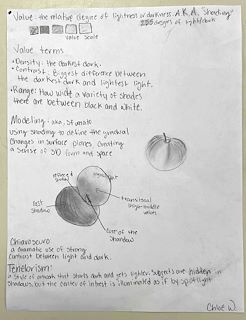 Value: the relative degree of lightness or darkness. A.K.A. Shading
degrees of light/dark
Value Scale
Value terms
• Density: the darkest dark.
• Contrast: Biggest difference between
the darkest dark and lightest light.
• Range: How wide a variety of shades
there are between black and white.
Modeling: aka, Sfumato
using shading to define the gradual
changes in surface planes creating
a sense of 3D form and space
reflected
cast
Shadow
transitional
values
core of the
Shadow
Chiaroscuro
a dramatic use of strong
contrast between light and dark.
Tenebrism:
a style of artwork that starts dark and gets lighter. Subjects are hidden in
shadows, but the center of intrest is illuminated as if by spotlight
Chloe W.